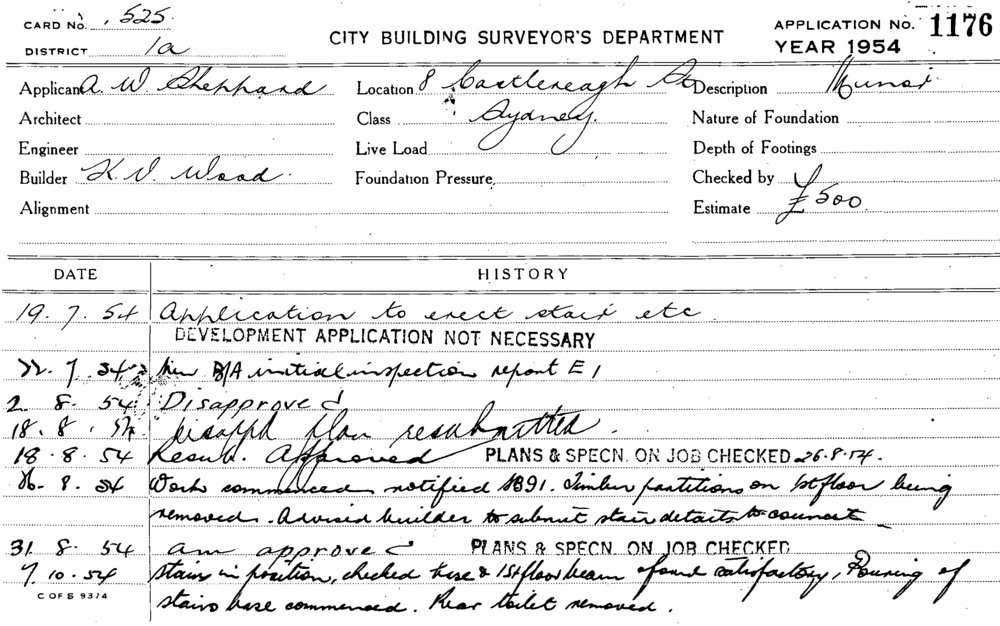 CARD NO. 525
APPLICATION NO. 1176
DISTRICT 1a
CITY BUILDING SURVEYOR'S DEPARTMENT
YEAR 1954
Applicant A. W. Sheppard Location 8 Castlereagh St Description Minor
Architect Class Sydney. Nature of Foundation
Engineer Live Load Depth of Footings
Builder K. V. Wood. Foundation Pressure Checked by
Alignment Estimate £500.
DATE HISTORY
19. 7. 54 Application to erect stair etc
DEVELOPMENT APPLICATION NOT NECESSARY
22. 7. 54 B/A initial inspection report E1
2. 8. 54 Disapproved
18. 8. 54. Disappd plan resubmitted.
18. 8. 54 Resub. Approved PLANS & SPECN. ON JOB CHECKED 26.8.54.
26. 8. 54 Work commenced notified B91. Timber partitions on 1st floor being
removed. Advised builder to submit stair details to council
31. 8. 54 am approved PLANS & SPECN. ON JOB CHECKED
7. 10. 54 Stairs in position, checked base & 1st floor beam found satisfactory, Pouring of
stairs base commenced. Rear toilet removed.
C OF S 93/4